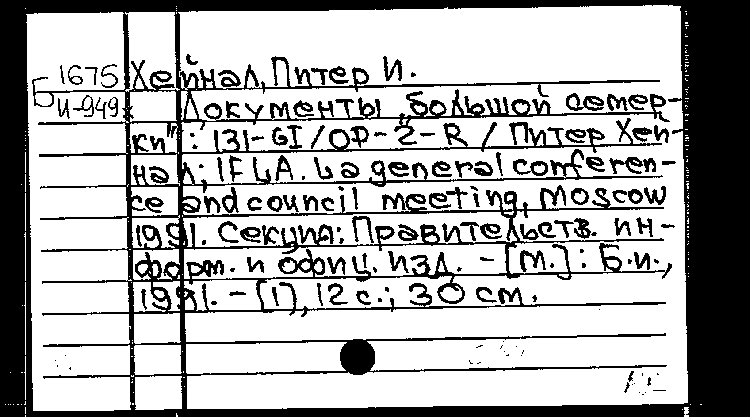 Б 1675 Хейнал, Питер И.
И-949
Документы „большой семер-
ки": 131-GI/OP-2-R / Питер Хей-
нал; IFLA. La general conferen-
ce and council meeting, Moscow
1991. Секция: Правительств. ин-
форм. и офиц. изд. - [М.]: Б.и.,
1991. - [1], 12 с.; 30 см.